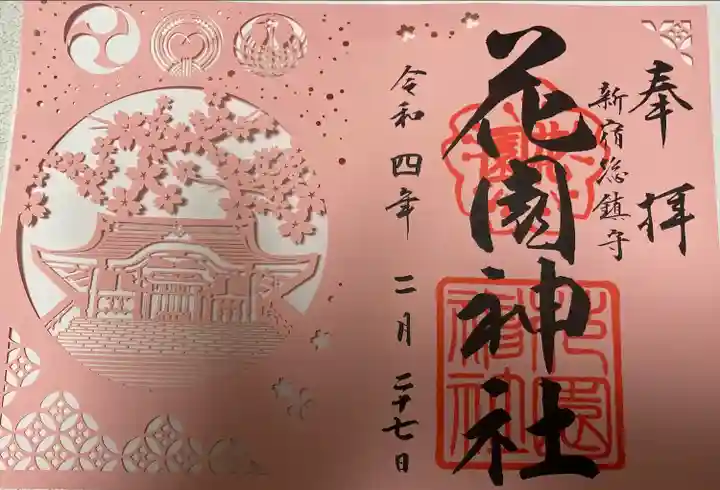 奉拝
新宿総鎮守
花園神社
花園
花園神社
令和四年 二月 二十七日